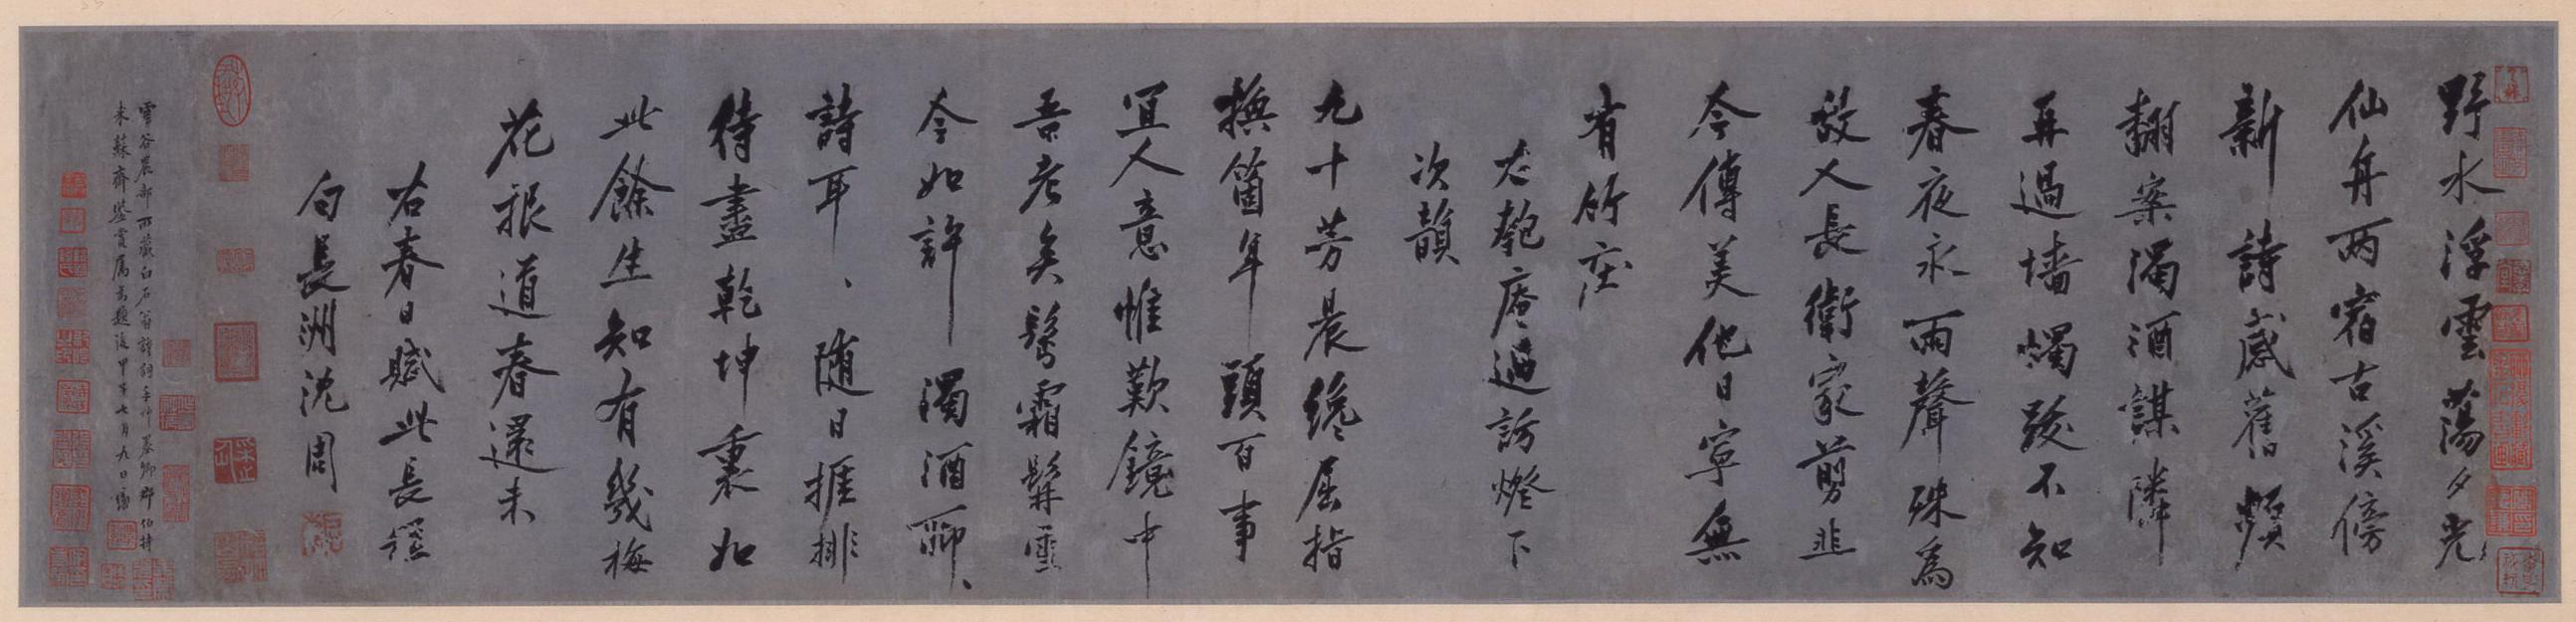 野水浮雲蕩夕光
仙舟兩宿古溪傍
新詩感舊頻
翻案濁酒謀隣
再過墻燭跋不知
春夜永雨聲殊為
故人長衛家剪韭
今傳美他日寧無
有竹莊
匏庵過訪燈下
次韻
九十芳晨纔屈指
撫箇年頭百事
宜人意惟歎鏡中
吾老矣鬢霜髯雪
今如許濁酒聊、
詩耳、随日捱排
待盡乾坤裏如
此餘生知有幾梅
花報道春還未
右春日賦此長篇
白長洲沈周
雪谷農部所藏白石翁詩詞手巻慕卿郡伯持
来蘇齋鑒賞属為題後甲午七月九日